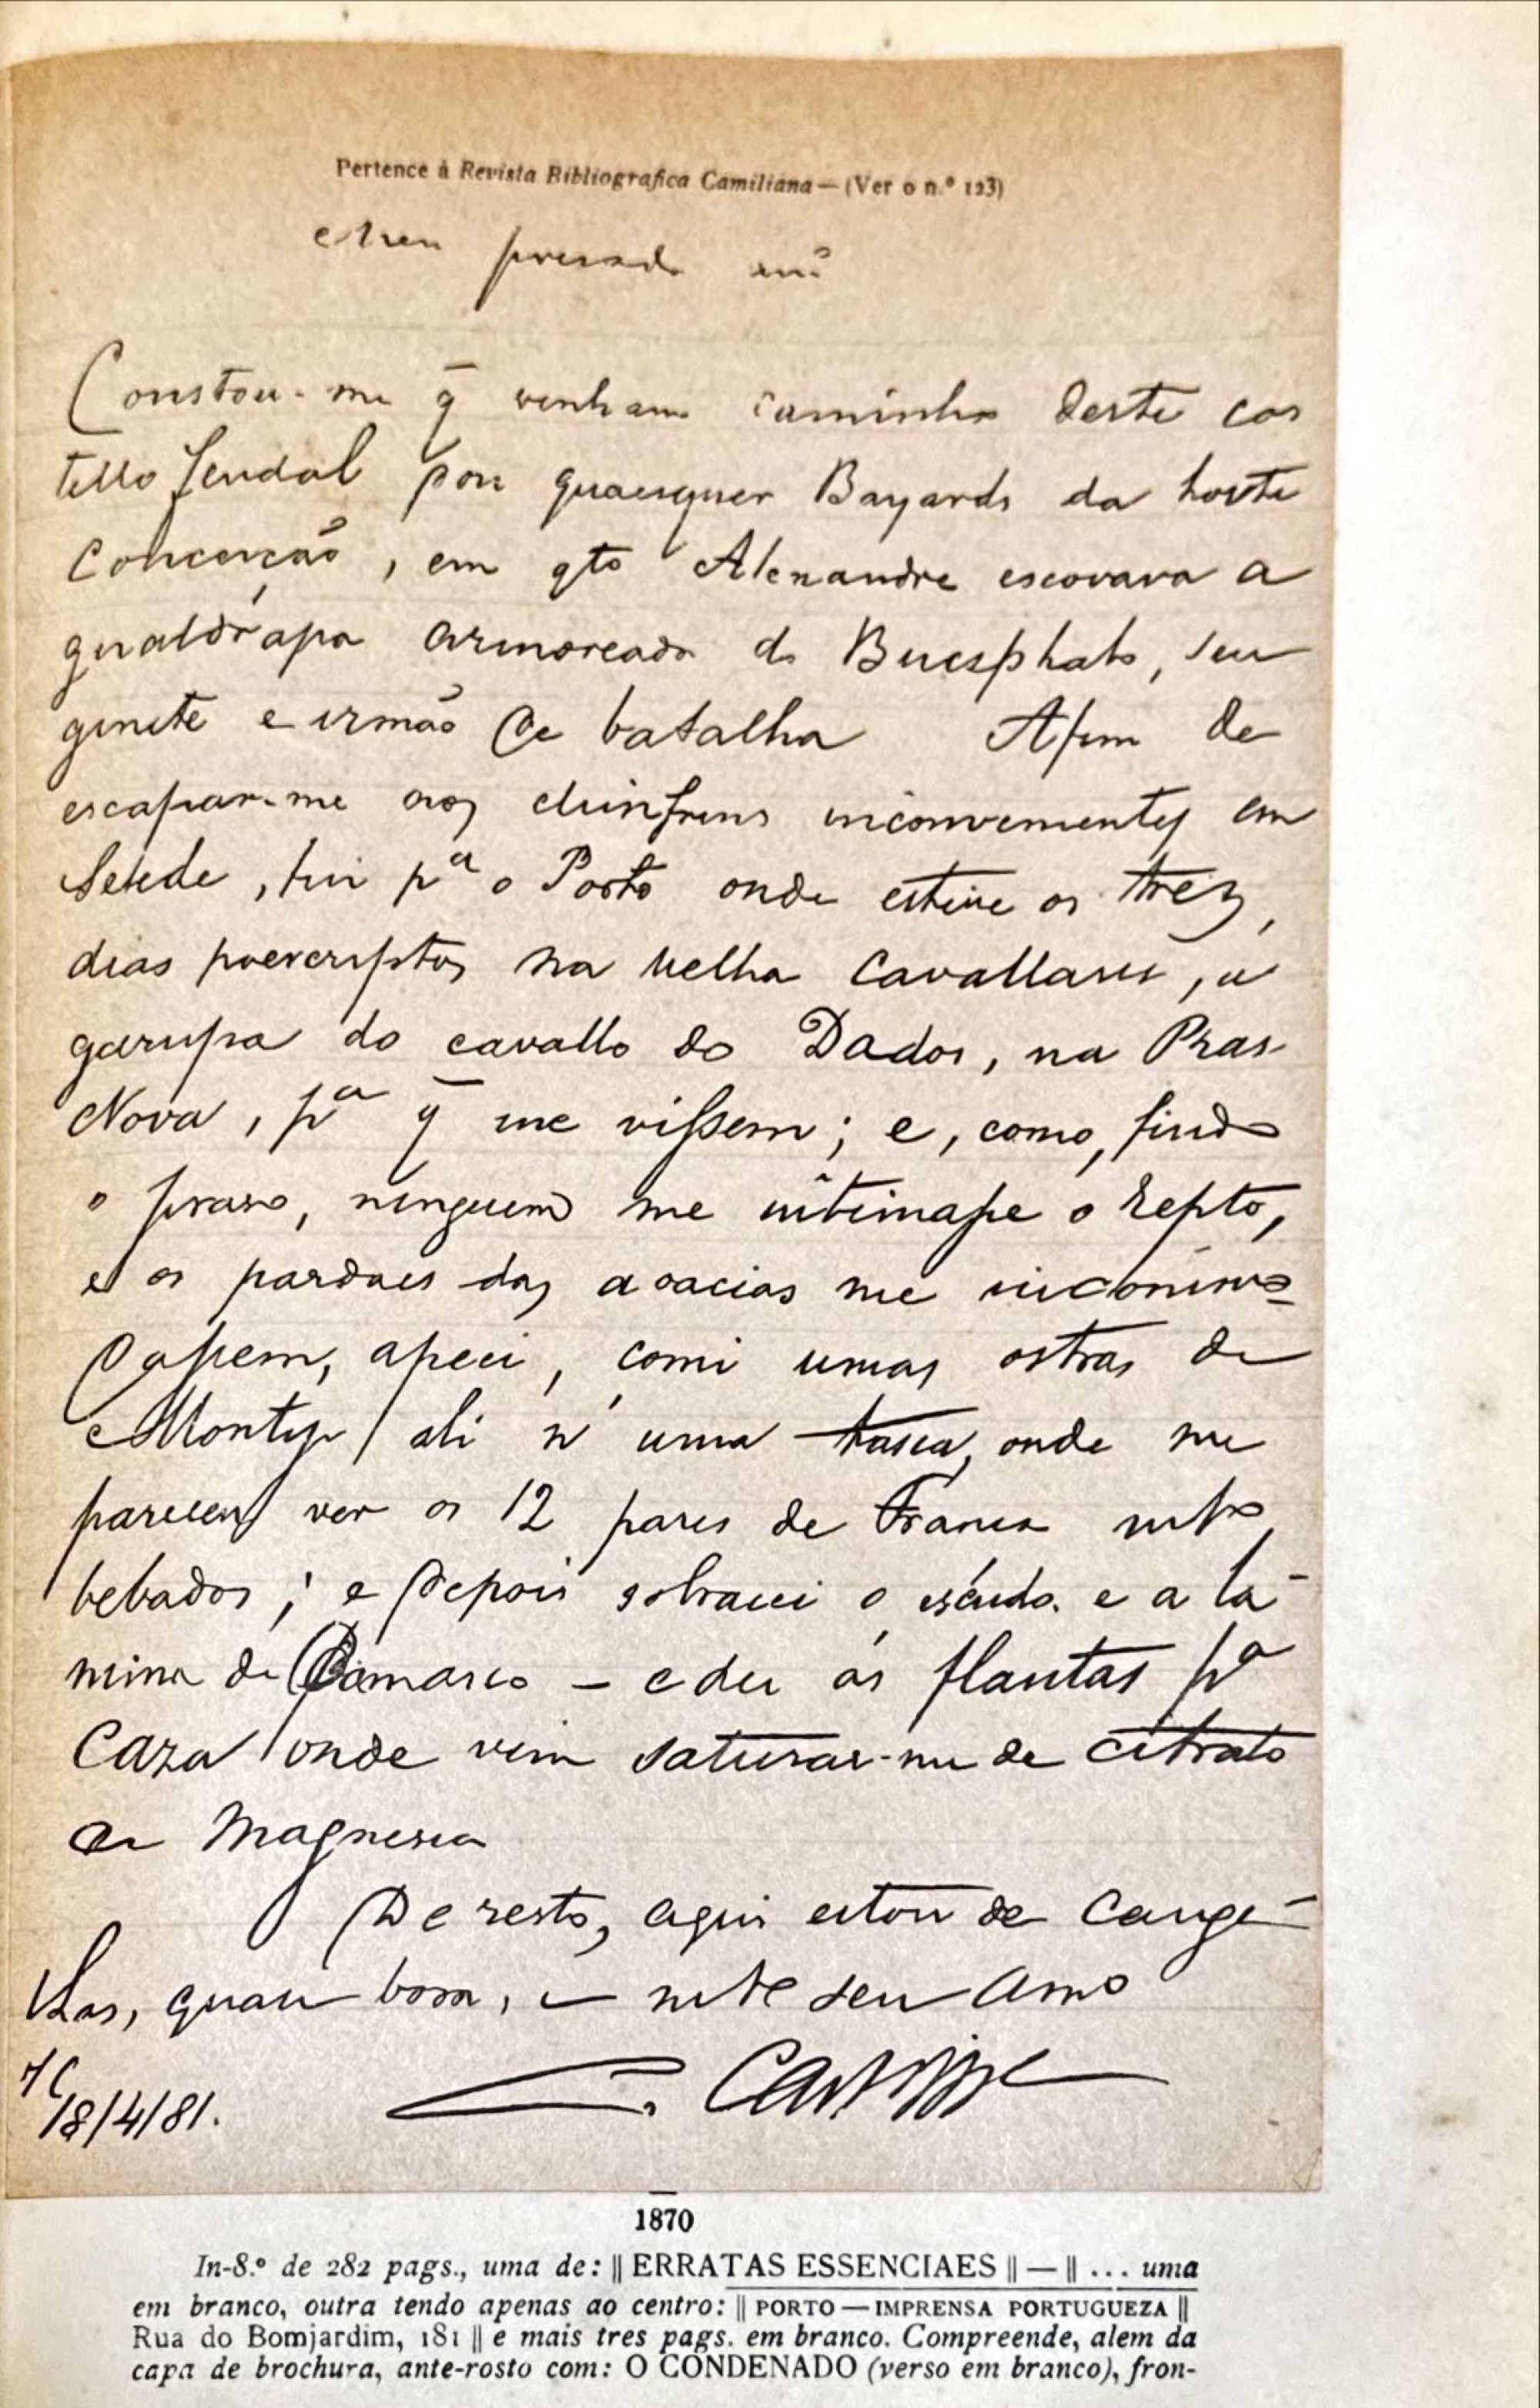 Pertence á Revista Bibliografica Camiliana — (Ver o n.º 123)
Meu presado am.º
Constou-me q̄ venham caminho deste cas
tello feudal por quaesquer Bayards da hoste
Conceição, em qto Alexandre escovava a
gualdrapa armoreada do Bucephalo, seu
ginete e irmão de batalha Afim de
escapar-me aos chinfrins inconvenientes em
Seide, fui pª o Porto onde estive os trez
dias prescriptos na velha Cavallaria, á
garupa do cavallo do Dador, na Praç
Nova, pª q̄ me vissem; e, como, findo
o praso, ninguem me intimasse o repto,
e os pardaes das acacias me incommo
dassem, apeei, comi umas ostras de
Montijo ali n'uma tasca, onde me
pareceu ver os 12 pares de França mto
bebados; e depois sobracei o escudo e a la-
mina de Damasco — e dei ás plantas pª
Caza onde vim saturar-me de citrato
de Magnesia
De resto, aqui estou de cange-
lhas, quasi bom, e mte seu amo
18/4/81.
C. Castello
1870
In-8.º de 282 pags., uma de: || ERRATAS ESSENCIAES || — || ... uma
em branco, outra tendo apenas ao centro: || PORTO — IMPRENSA PORTUGUEZA ||
Rua do Bomjardim, 181 || e mais tres pags. em branco. Compreende, alem da
capa de brochura, ante-rosto com: O CONDENADO (verso em branco), fron-